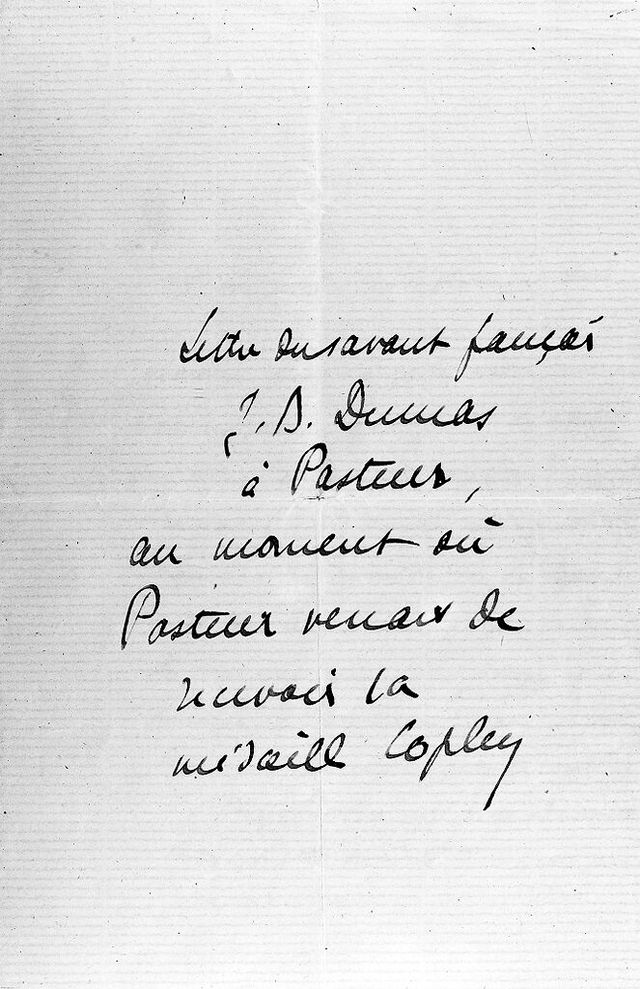 Lettre du savant français
J. B. Dumas
à Pasteur,
au moment où
Pasteur venait de
recevoir la
médaille Copley